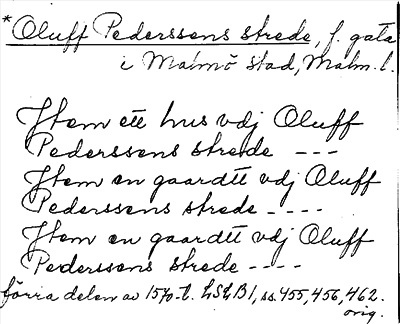 *Oluff Pederssens strede, f. gata
i Malmö stad, Malm. l.
Jtem ett hus vdj Oluff
Pederssens strede ---
Jtem en gaardtt vdj Oluff
Pederssens strede ----
Jtem en gaardtt vdj Oluff
Pederssens strede ----
förra delen av 1570-t. LSkB1, ss. 455, 456, 462.
orig.